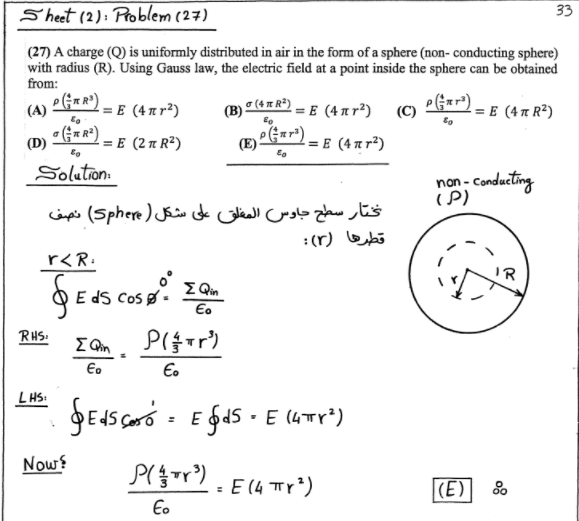 33
Sheet (2): Problem (27)
(27) A charge (Q) is uniformly distributed in air in the form of a sphere (non- conducting sphere)
with radius (R). Using Gauss law, the electric field at a point inside the sphere can be obtained
from:
(A) ρ(4/3 π R³)/ε₀ = E (4 π r²) (B) σ(4 π R²)/ε₀ = E (4 π r²) (C) ρ(4/3 π r³)/ε₀ = E (4 π R²)
(D) σ(4/3 π R²)/ε₀ = E (2 π R²) (E) ρ(4/3 π r³)/ε₀ = E (4 π r²)
Solution:
non-conducting
(ρ)
نختار سطح جاوس المغلق على شكل (Sphere) نصف
قطرها (r):
r R
r<R:
∮ E dS cos ø 0° = Σ Qin/ε₀
RHS: Σ Qin/ε₀ = ρ(4/3 π r³)/ε₀
LHS:
∮ E dS cos 0 1 = E ∮ dS = E (4πr²)
Now:
ρ(4/3 π r³)/ε₀ = E (4 π r²) (E)